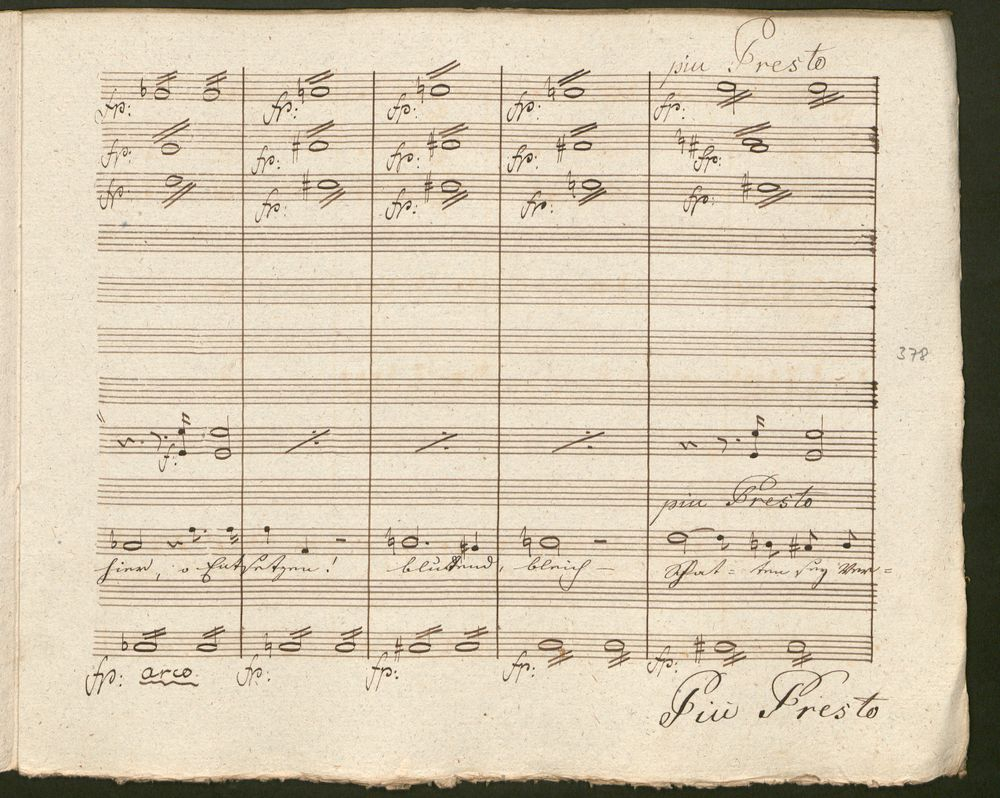 piu Presto
fp: fp: fp: fp: fp:
fp: fp: fp: fp: fp:
fp: fp: fp: fp: fp:
378
f:
piu Presto
hier, o Entsetzen! bluttend, bleich – Schat= ten sey Ver=
fp: arco. fp: fp: fp: fp:
Piu Presto